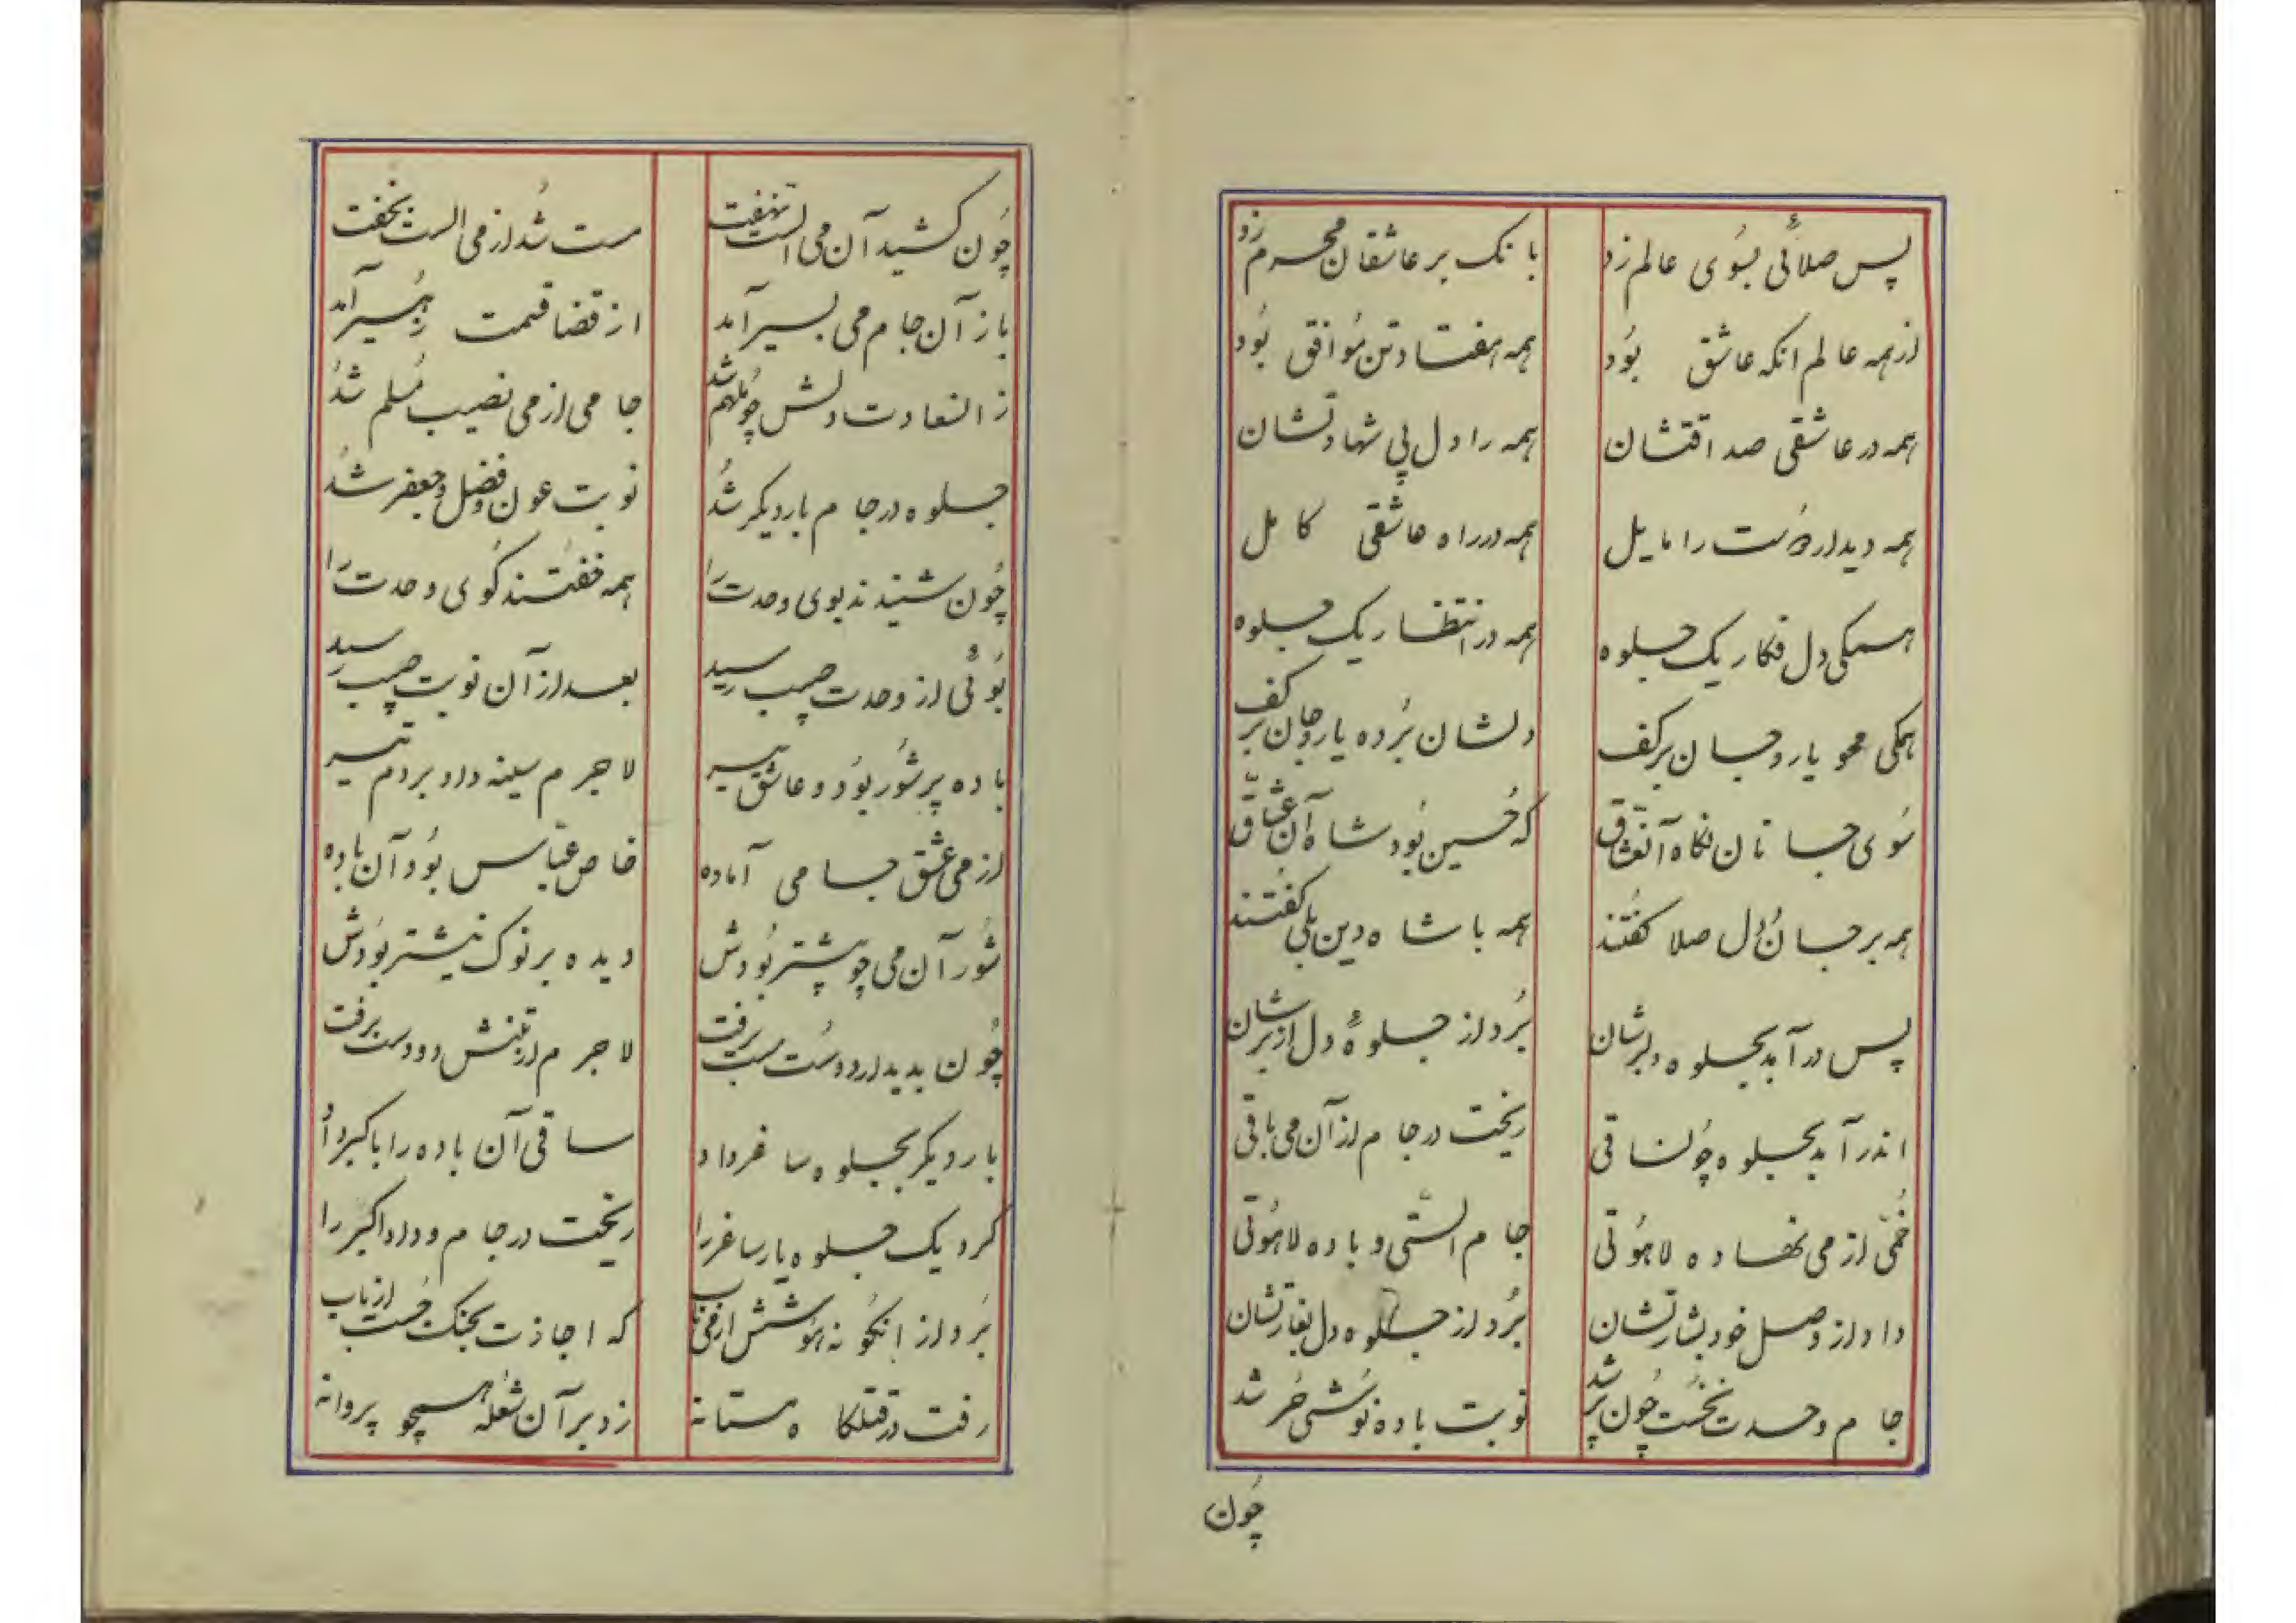 پس صلائی بسوی عالم زد بانک بر عاشقان محرم زد
از همه عالم انکه عاشق بود همه هفتاد تن موافق بود
همه در عاشقی صداقتشان همه را دل پی شهادتشان
همه دیدار دوست را مایل همه در راه عاشقی کامل
همکی دل فکار یک جلوه همه در انتظار یک جلوه
همکی محو یار و جان بر کف دلشان برده یار و جان بر کف
سوی جانان نکاه آنعشاق که حسین بود شاه آن عشاق
همه بر جان و دل صلا کفتند همه با شاه دین بلی کفتند
پس در آمد بجلوه دلبرشان برد از جلوهٔ دل از برشان
اندر آمد بجلوه چون ساقی ریخت در جام از آن می باقی
خمی از می نهاده لاهوتی جام الستی و باده لاهوتی
داد از وصل خود بشارتشان برد از جلوه دل بغارتشان
جام وحدت نخست چون پر شد نوبت باده نوشی حر شد
چون
چون کشید آن می الست نهفت مست شد از می الست بخفت
باز آن جام می بسیر آمد از قضا قسمت زهیر آمد
ز انسعادت دلش چو ملهم شد جامی از می نصیب مسلم شد
جلوه در جام بار دیکر شد نوبت عون و فضل و جعفر شد
چون شنیدند بوی وحدت را همه خفتند کوی وحدت را
بوئی از وحدت حبیب رسید بعد از آن نوبت حبیب رسید
باده پر شور بود و عاشق لاجرم سینه داد بر دم تیر
از می عشق جامی آماده خاص عباس بود آن باده
شور آن می چو بیشتر بودش دیده بر نوک نیشتر بودش
چون بدیدار دوست مست برفت لاجرم از تنش دو دست برفت
بار دیکر بجلوه ساغر داد ساقی آن باده را باکبر داد
کرد یک جلوه یار ساغر را ریخت در جام و داد اکبر را
برد از انکونه هوشش از می ناب که اجازت بجنک جست از باب
رفت در قتلکاه مستانه زد بر آن شعله همچو پروانه